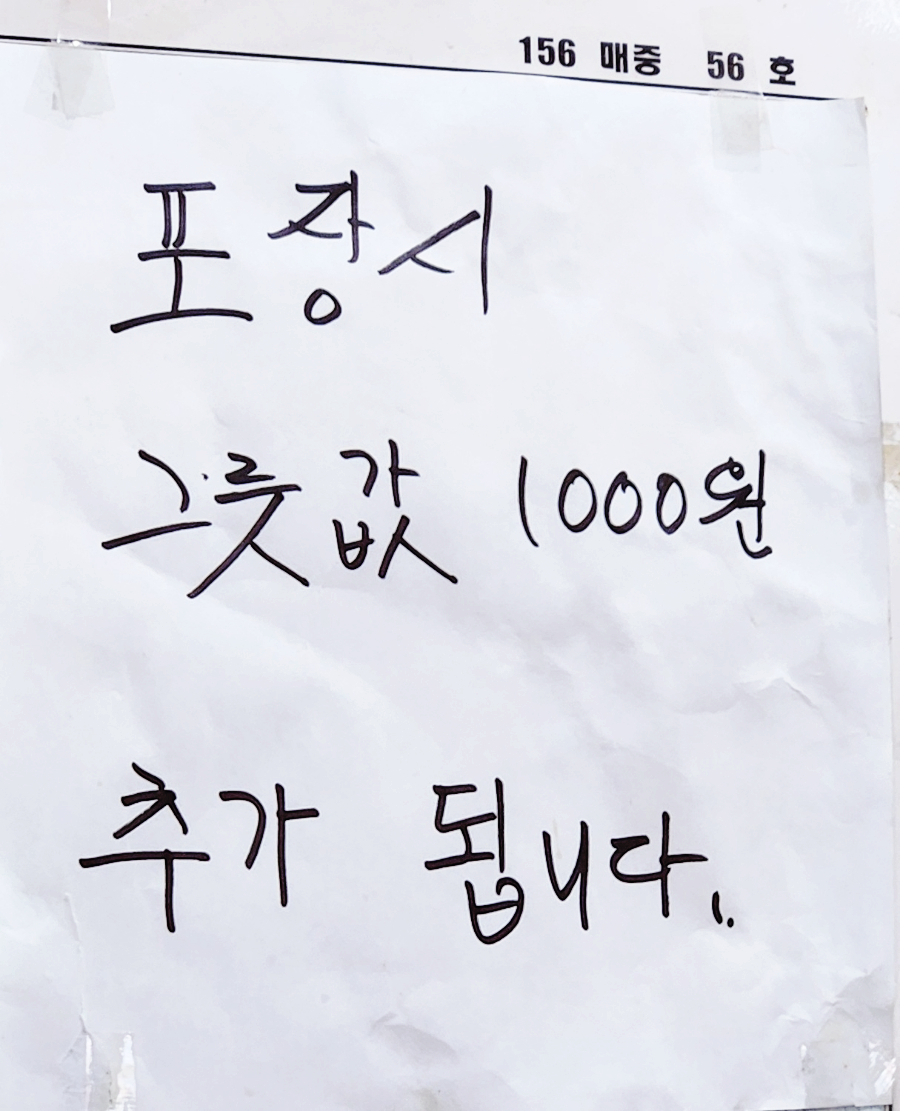 156 매중 56 호
포장시
그릇값 1000원
추가 됩니다..